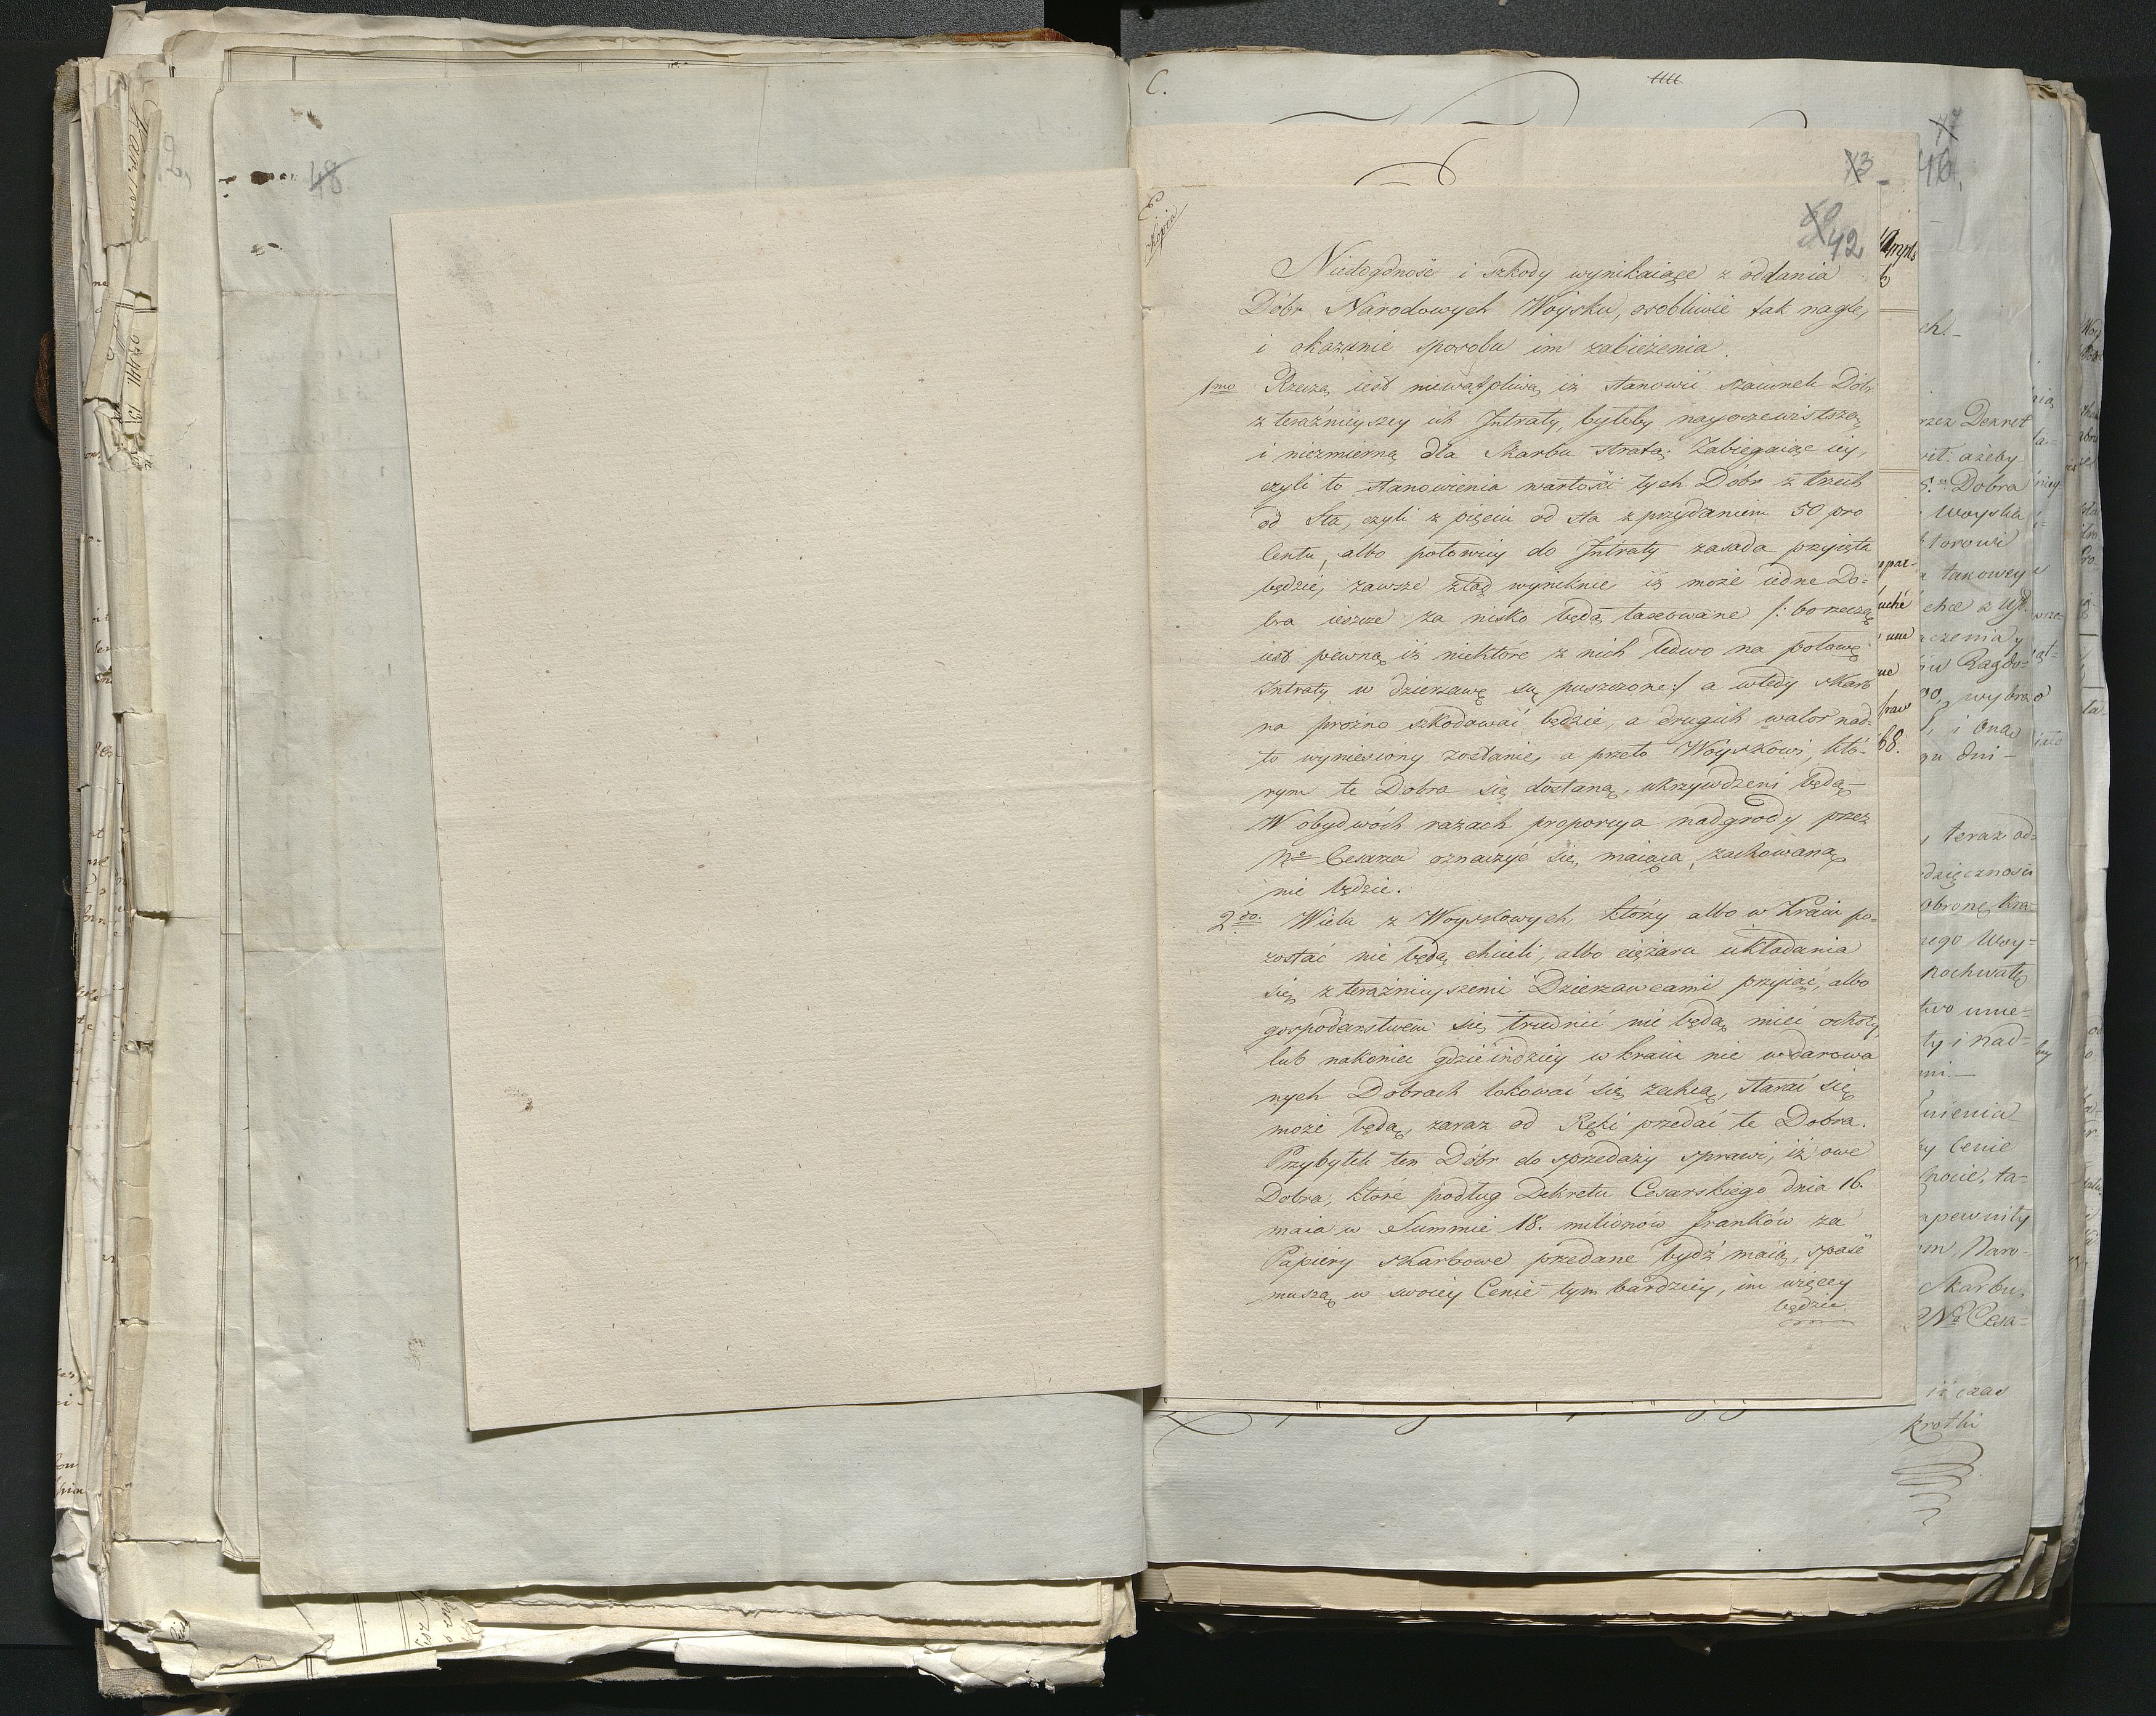 48
C.
73
46.
E
Kopia
42
Niedogdność i szkody wynikaiące z oddania
Dóbr Narodowych Woysku, osobliwie tak nagłe,
i okazanie sposobu im zabieżenia.
1mo Rzeczą iest niewątpliwą iż stanowić szacunek Dóbr
z teraźnieyszey ich Intraty, byłoby nayoczewistszą
i niezmierną dla Skarbu stratą; Zabiegaiąc iey,
czyli to stanowienia wartości tych Dóbr z trzech
od Sta, czyli z pięciu od sta z przydaniem 50 pro
Centu, albo połowicy do Intraty zasada przyięta
będzie, zawsze ztąd wyniknie iż może iedne Do=
bra ieszcze za nisko będą taxowane /: bo rzeczą
iest pewną iż niektóre z nich ledwo na połowę
Intraty w dzierżawę są puszczone :/ a wtedy Skarb
na prożno szkodować będzie, a drugich walor nad=
to wyniesiony zostanie, a przeto Woyskowi, któ=
rym te Dobra się dostaną, ukrzywdzeni będą —
W obydwóch razach proporcya nadgrody przez
Ne Cesarza oznaczyć się maiąca, zachowaną
nie będzie.
2do. Wielu z Woyskowych, którzy albo w Kraiu po=
zostać nie będą chcieli, albo ciężaru układania
się z teraźnieyszemi Dzierżawcami przyiąć, albo
gospodarstwem się trudnić nie będą mieć ochoty,
lub nakoniec gdzieindziey w kraiu nie w darowa
nych Dobrach lokować się zechcą, starać się
może będą, zaraz od Ręki przedać te Dobra.
Przybytek ten Dóbr do sprzedaży sprawi, iż owe
Dobra, które podług Dekretu Cesarskiego dnia 16.
maia w Summie 18. milionów franków za
Papiery Skarbowe przedane bydź maią, spaść
muszą w swoiey Cenie tym bardziey, im więcey
będzie
ch. —
rzez Dekret
ażeby
Dobra
Woyska
torowi
takowey
czenia
wybra
i ona
dni —
teraz od=
dzięczności
obronę kra=
nego Woy=
pochwałę
two umie=
ty i nad=
mi. —
nienia
Cenie
ta=
apewnity
Naro=
Skarbu,
Ne Cesa=
iż czas
krotki
68.